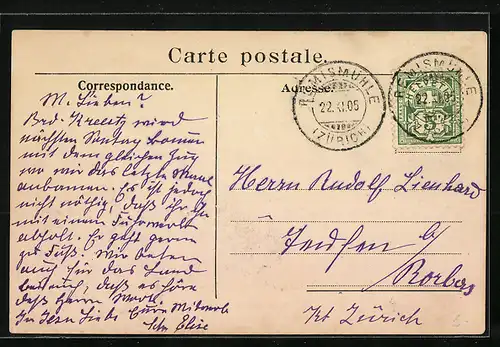 Carte postale.
Correspondance.
Adresse.
RÄMISMÜHLE
22.XI.05
(ZÜRICH)
RÄMISMÜHLE
22.XI.05
M. Lieben!
Brd. wird
nächsten Sontag kommen
mit dem gleichen Zug
wo wir das letzte Mal
ankamen. Es ist jedoch
nicht nöthig, daß ihr Ihn
mit einem Fuhrwerk
abholt. Er geht gern
zu Fuß. Wir beten
auch für das Land
daß es höre
des Herrn Wort.
In Jesu Liebe Eure Mitverb.
Schw. Elise
Herrn Rudolf Lienhard
b/
Rorbas
Kt Zürich